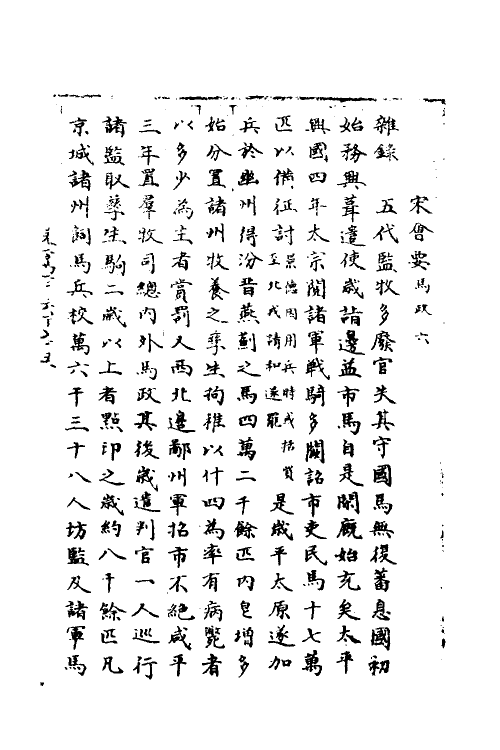 宋會要馬政六
雜錄　五代監牧多廢官失其守國馬無復蕃息國初
始務興葺遣使歲詣邊益市馬自是閑廐始充矣太平
興國四年太宗閱諸軍戰騎多闕詔市吏民馬十七萬
匹以備征討景德因用兵時或括買至北戎請和遂罷是歲平太原遂加
兵於幽州得汾晉燕薊之馬四萬二千餘匹內皂增多
始分置諸州牧養之孳生拘稚以什四為率有病斃者
以多少為主者賞罰又西北邊鄙州軍招市不絕咸平
三年置羣牧司總內外馬政其後歲遣判官一人巡行
諸監取孳生駒二歲以上者點印之歲約八千餘匹凡
京城諸州飼馬兵校萬六千三十八人坊監及諸軍馬